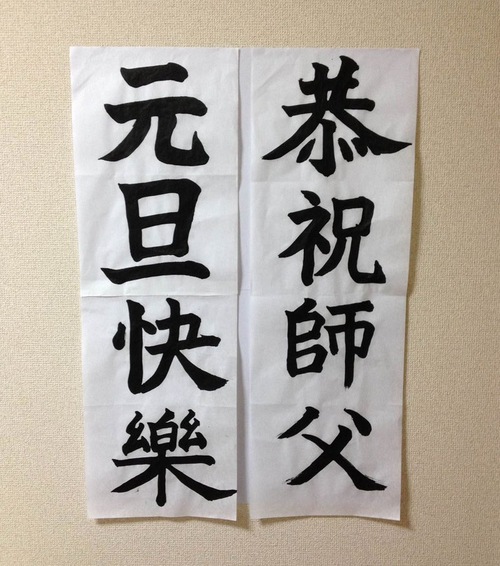 恭祝師父
元旦快樂